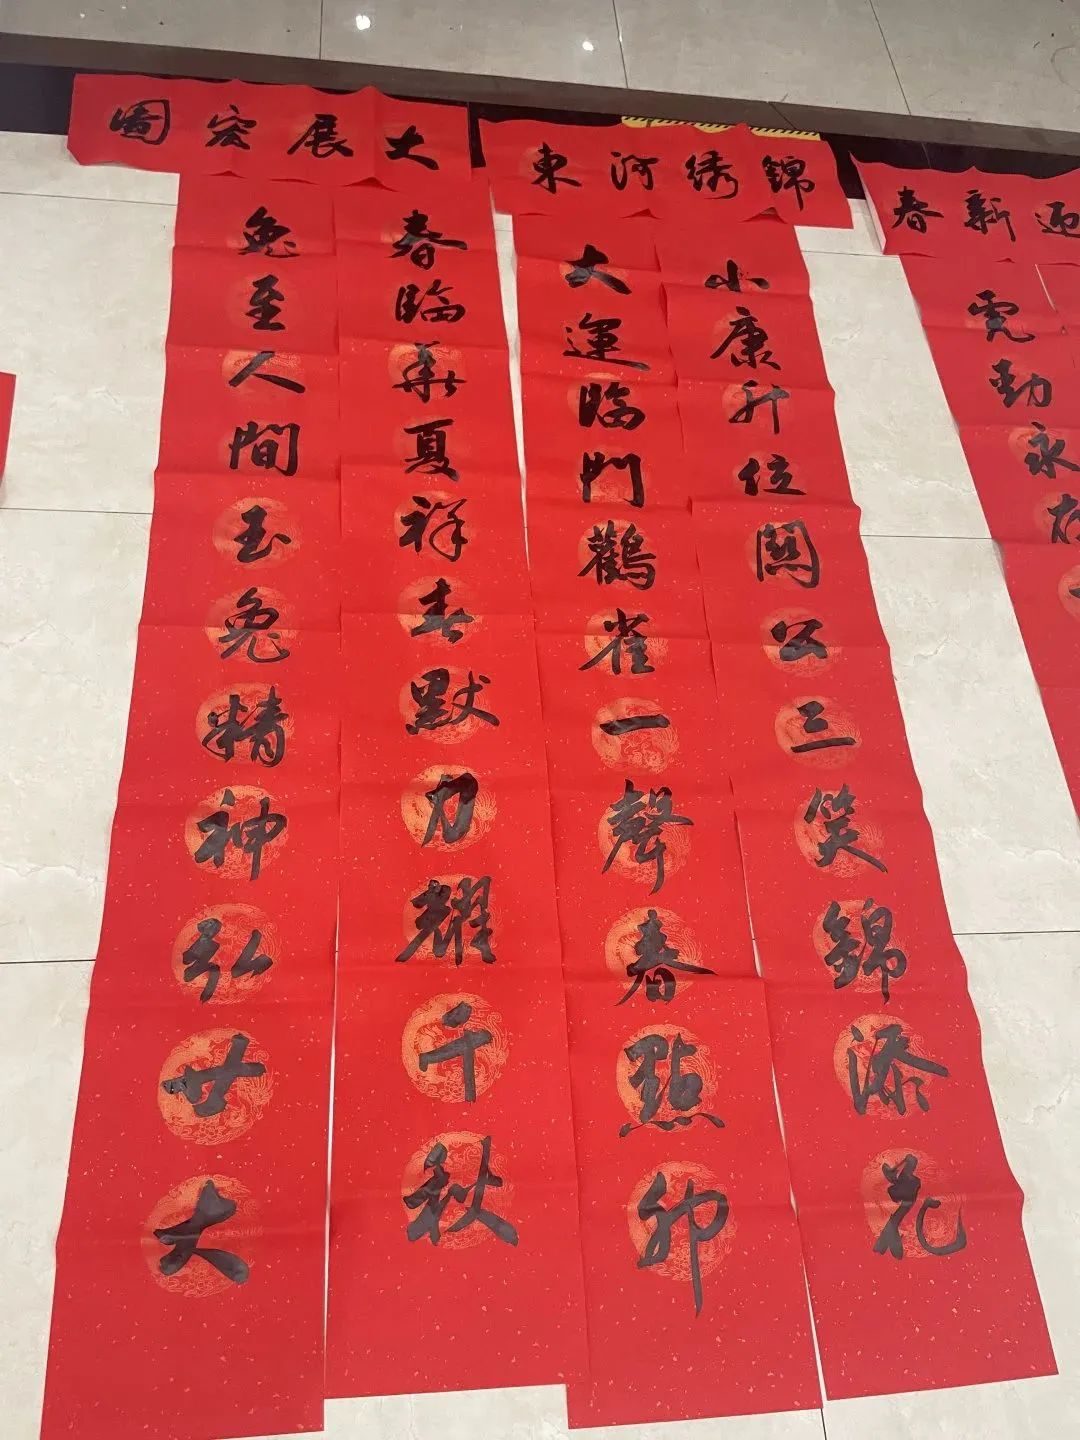 大展宏圖
春臨華夏祥春默力耀千秋
兔至人間玉兔精神弘廿大
錦绣河東
小康升位關公三笑錦添花
大運臨門鸛雀一聲春點卯
迎新春
虎勁永